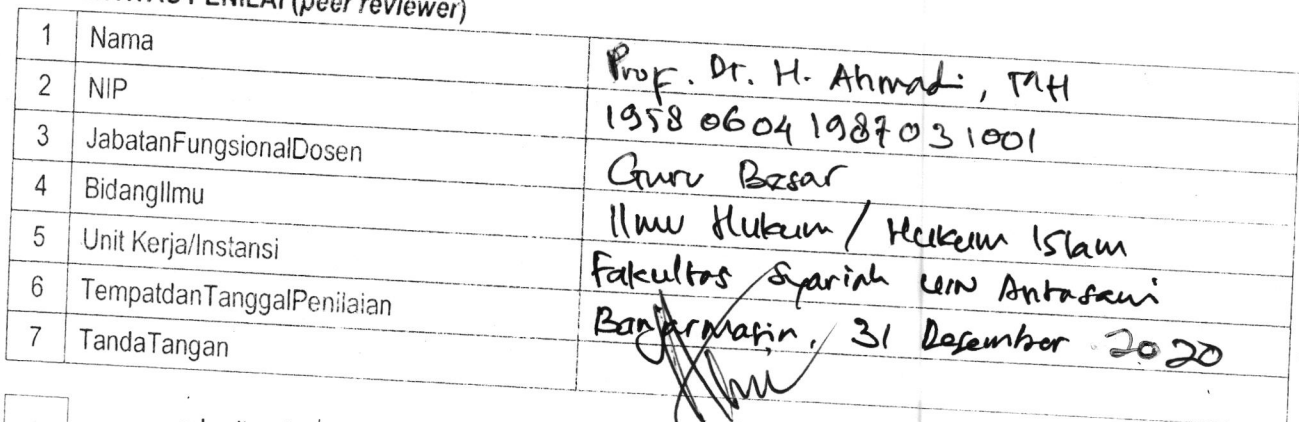 PENILAI (peer reviewer)
1 Nama Prof. Dr. H. Ahmadi, MH
2 NIP 19580604 198703 1001
3 JabatanFungsionalDosen Guru Besar
4 BidangIlmu Ilmu Hukum / Hukum Islam
5 Unit Kerja/Instansi Fakultas Syariah UIN Antasari
6 TempatdanTanggalPenilaian Banjarmasin, 31 Desember 2020
7 TandaTangan